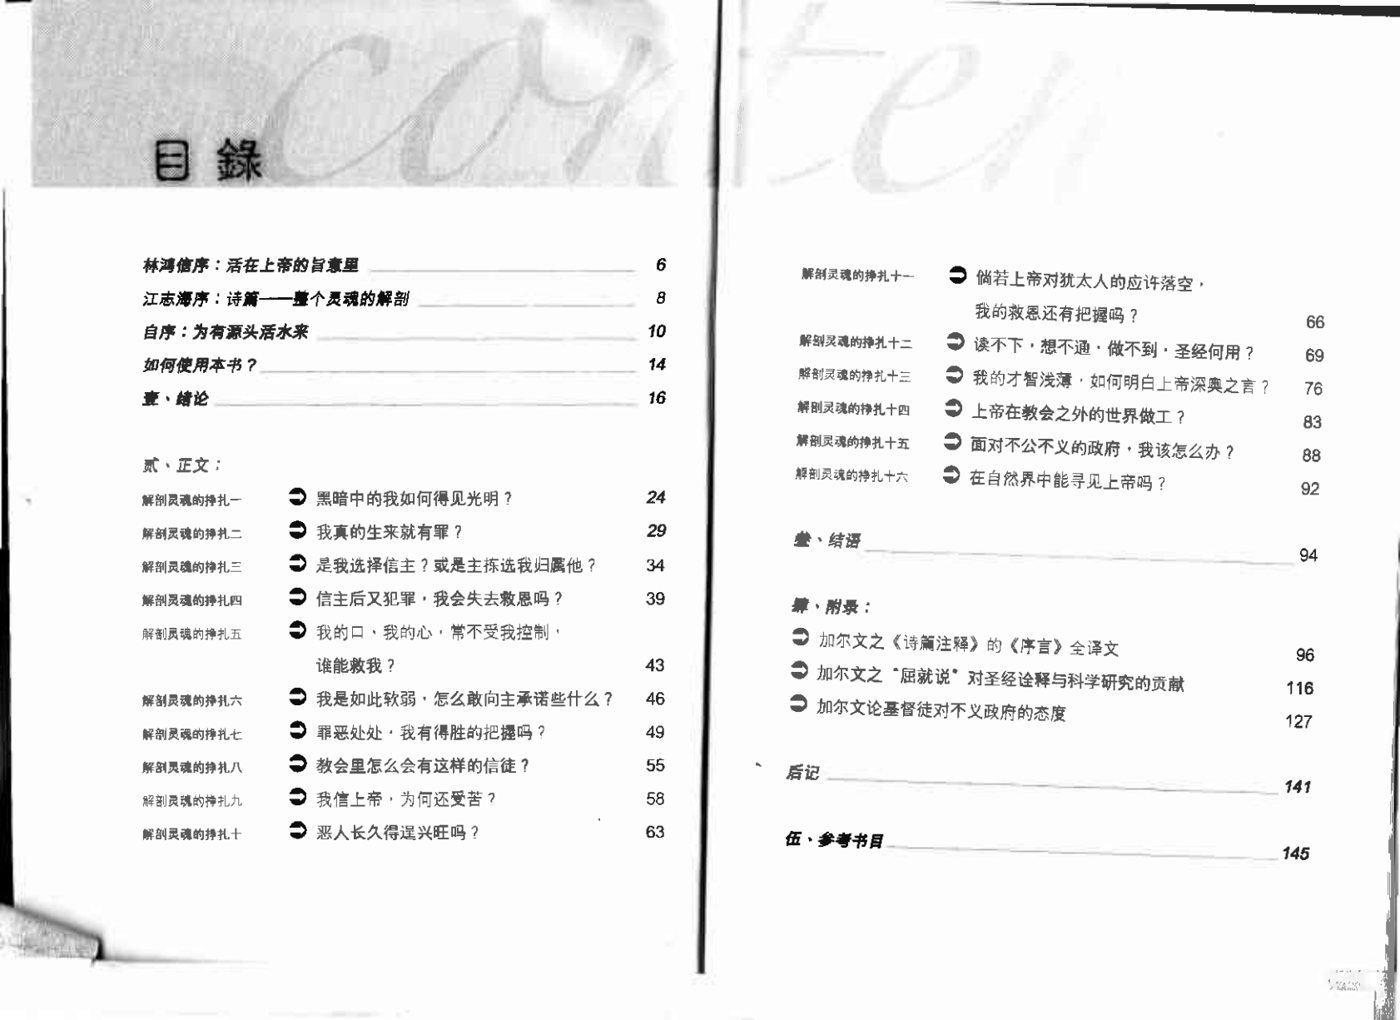 conten
目錄
林鸿信序：活在上帝的旨意里 6
江志海序：诗篇——整个灵魂的解剖 8
自序：为有源头活水来 10
如何使用本书？ 14
壹、绪论 16
贰、正文：
解剖灵魂的挣扎一 黑暗中的我如何得见光明？ 24
解剖灵魂的挣扎二 我真的生来就有罪？ 29
解剖灵魂的挣扎三 是我选择信主？或是主拣选我归属他？ 34
解剖灵魂的挣扎四 信主后又犯罪，我会失去救恩吗？ 39
解剖灵魂的挣扎五 我的口、我的心，常不受我控制，
谁能救我？ 43
解剖灵魂的挣扎六 我是如此软弱，怎么敢向主承诺些什么？ 46
解剖灵魂的挣扎七 罪恶处处，我有得胜的把握吗？ 49
解剖灵魂的挣扎八 教会里怎么会有这样的信徒？ 55
解剖灵魂的挣扎九 我信上帝，为何还受苦？ 58
解剖灵魂的挣扎十 恶人长久得逞兴旺吗？ 63
解剖灵魂的挣扎十一 倘若上帝对犹太人的应许落空，
我的救恩还有把握吗？ 66
解剖灵魂的挣扎十二 读不下，想不通，做不到，圣经何用？ 69
解剖灵魂的挣扎十三 我的才智浅薄，如何明白上帝深奥之言？ 76
解剖灵魂的挣扎十四 上帝在教会之外的世界做工？ 83
解剖灵魂的挣扎十五 面对不公不义的政府，我该怎么办？ 88
解剖灵魂的挣扎十六 在自然界中能寻见上帝吗？ 92
叁、结语 94
肆、附录：
加尔文之《诗篇注释》的《序言》全译文 96
加尔文之“屈就说”对圣经诠释与科学研究的贡献 116
加尔文论基督徒对不义政府的态度 127
后记 141
伍、参考书目 145